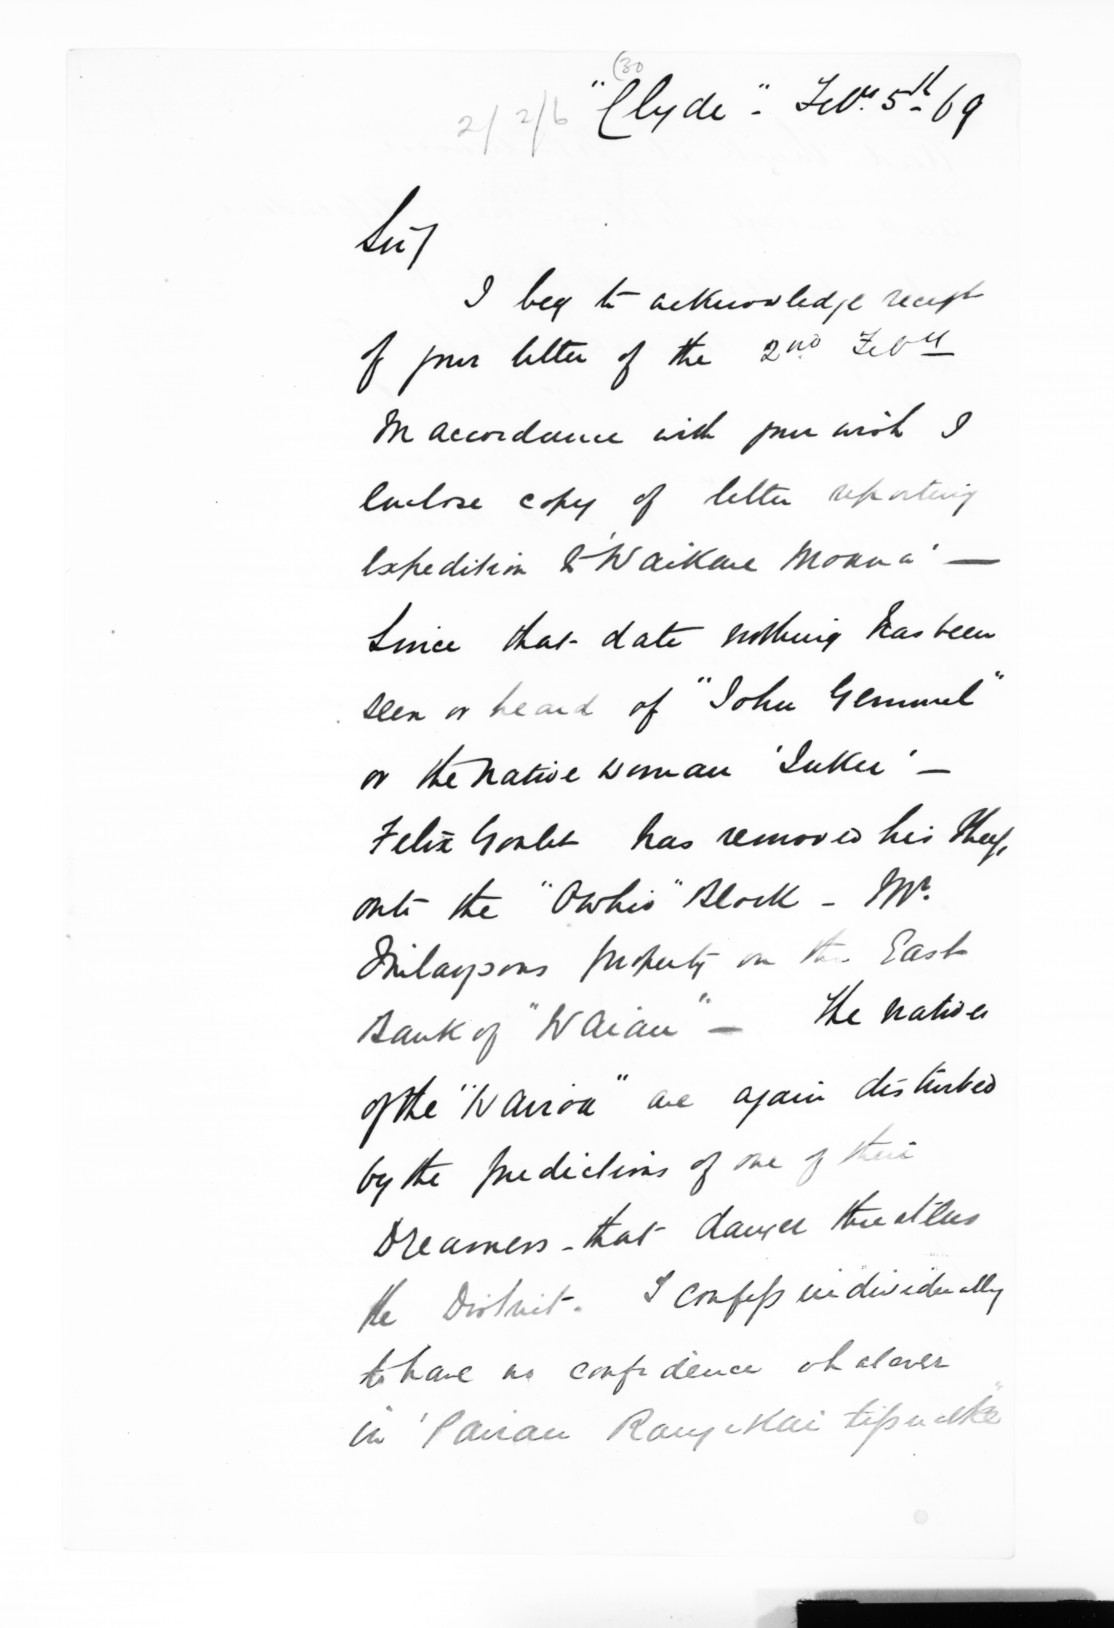 (30
2/2/6 "Clyde". Feby. 5th/69
Sir/
I beg to acknowledge receipt
of your letter of the 2nd Feby
In accordance with your wish I
enclose copy of letter reporting
expedition to 'Waikare Moana' —
Since that date nothing has been
seen or heard of "John Gemmel"
or the Native Woman —
Felix Goulet has removed his Sheep
onto the Block – Mr.
property on the East
Bank of "Waiau" — The natives
of the "Wairoa" are again disturbed
by the predictions of one of their
Dreamers – that danger threatens
the District. I confess individually
to have no confidence whatever
in